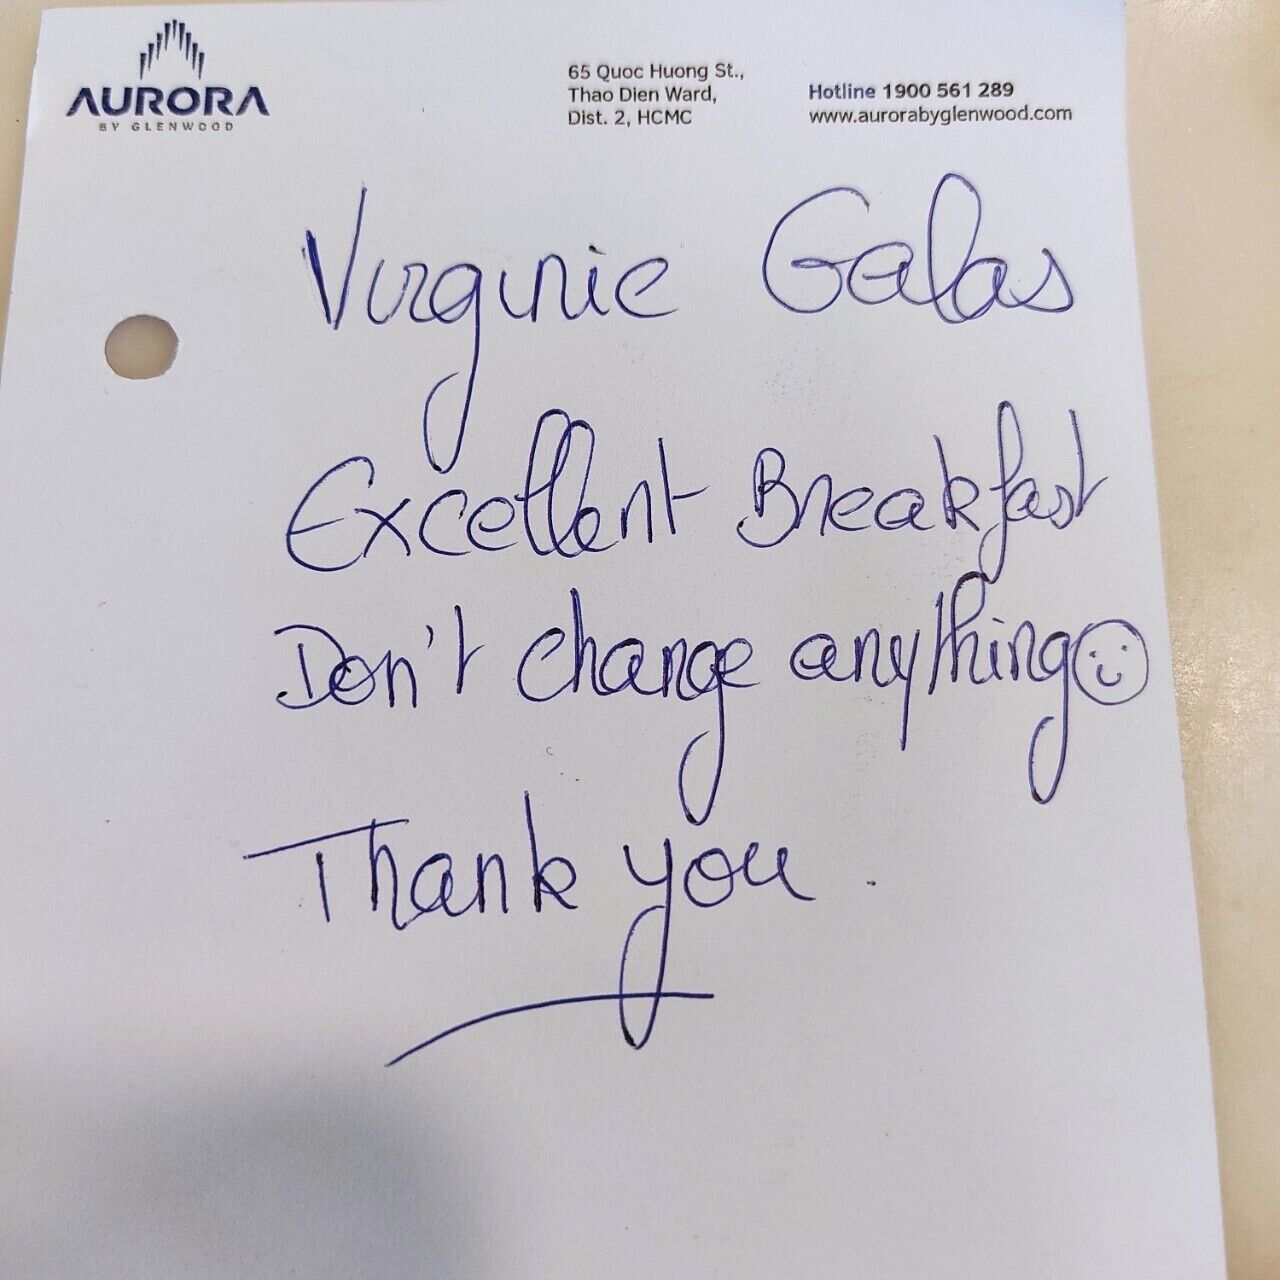 AURORA
BY GLENWOOD
65 Quoc Huong St.,
Thao Dien Ward,
Dist. 2, HCMC
Hotline 1900 561 289
www.aurorabyglenwood.com
Virginie Galas
Excellent Breakfast
Don't change anything
Thank you.